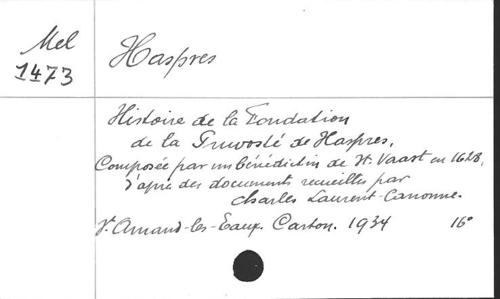 Mel
1473
Haspres
Histoire de la Fondation
de la Prévosté de Haspres,
Composée par un bénédictin de St. Vaast en 1628,
d'après des documents recueillis par
Charles Laurent-Canonne.
St. Amand-les-Eaux. Carton. 1934 16°